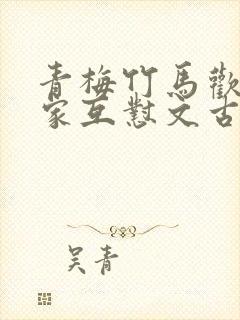 青梅竹馬歡
家互懟文古
吴青